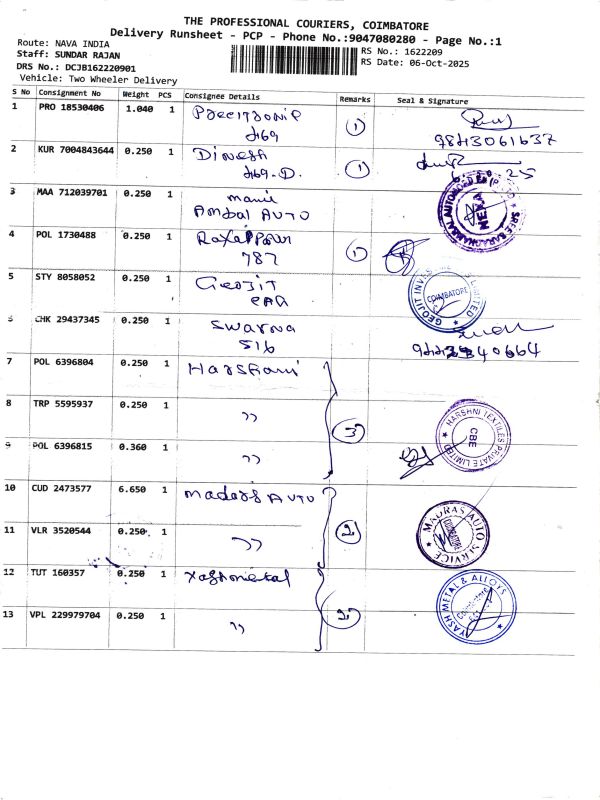 THE PROFESSIONAL COURIERS, COIMBATORE
Delivery Runsheet - PCP - Phone No.:9047080280 - Page No.:1
Route: NAVA INDIA
Staff: SUNDAR RAJAN
DRS No.: DCJB162220901
Vehicle: Two Wheeler Delivery
RS No.: 1622209
RS Date: 06-Oct-2025
S No Consignment No Weight PCS Consignee Details Remarks Seal & Signature
1 PRO 18530406 1.040 1
469 1 9843061637
2 KUR 7004843644 0.250 1 Dinesh
469-D. 1
3 MAA 712039701 0.250 1 mani
Ambal AUTO
4 POL 1730488 0.250 1
787 1
5 STY 8058052 0.250 1 Geojit
GEOJIT INVESTMENTS LIMITED
COIMBATORE
6 CHK 29437345 0.250 1 Swarna
516
7 POL 6396804 0.250 1 Harshani
8 TRP 5595937 0.250 1 ,, 3
HARSHNI TEXTILES PRIVATE LIMITED
CBE
9 POL 6396815 0.360 1 ,,
10 CUD 2473577 6.650 1 Madras AUTO
MADRAS AUTO SERVICE
COIMBATORE
11 VLR 3520544 0.250 1 ,, 2
12 TUT 160357 0.250 1
YASH METAL & ALLOYS
Coimbatore
13 VPL 229979704 0.250 1 ,, 2